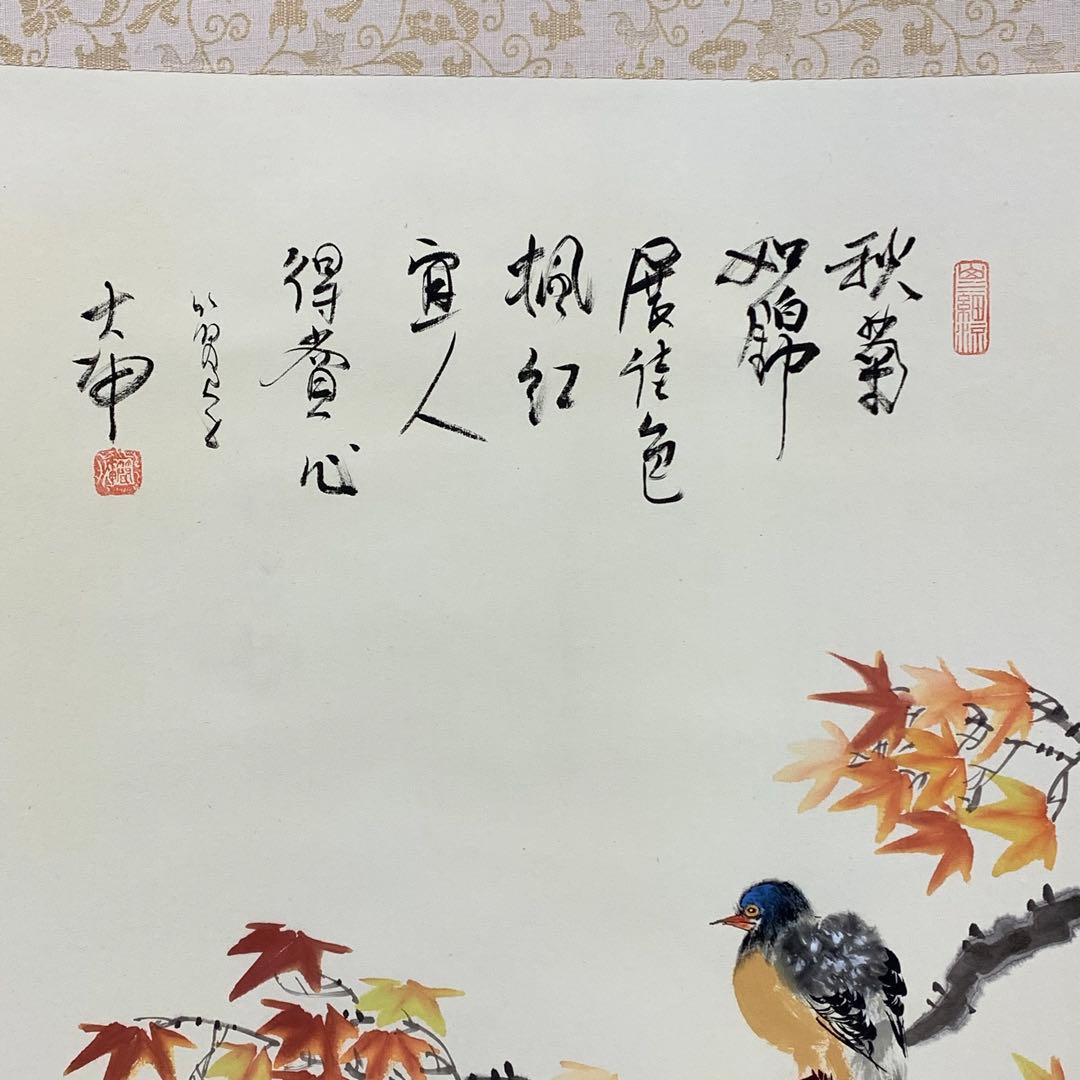 秋菊
如錦
展佳色
楓红
宜人
得賞心
大坤